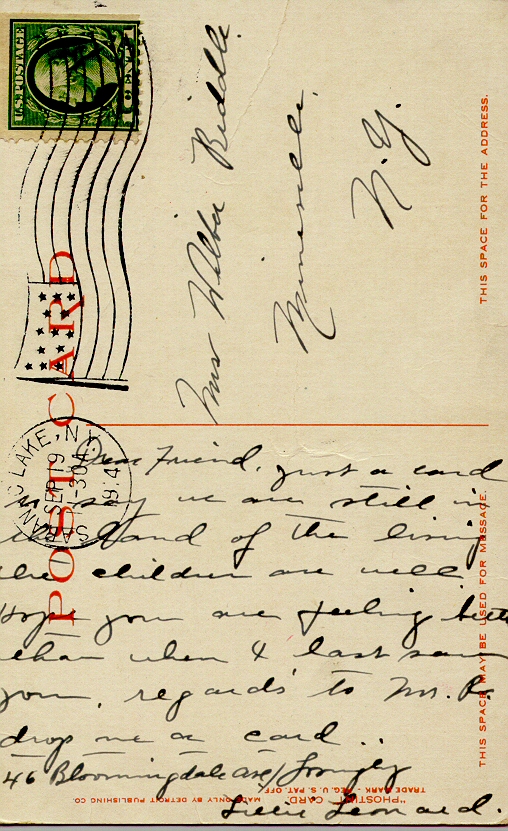 U.S. POSTAGE
1 CENT 1
SARANAC LAKE, N.Y.
SEP 19
1-30 A
1914
POST CARD
Mrs Wilber Riddle.
Minerva.
N.Y.
THIS SPACE FOR THE ADDRESS.
Dear Friend, just a card
to say we are still in
the land of the living
the children are well.
Hope you are feeling better
than when I last saw
you. regards to Mr. R.
drop me a card..
46 Bloomingdale ave/
Leonard.
THIS SPACE MAY BE USED FOR MESSAGE.
"PHOSTINT" CARD
TRADE MARK - REG. U.S. PAT. OFF.
MADE ONLY BY DETROIT PUBLISHING CO.